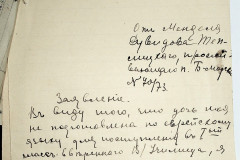 Отъ Менделя
Давидова Топ-
лицкаго, прожив-
№ 40/73.
Заявленіе.
Въ виду того, что дочь моя
не подготовлена по еврейскому
языку, для поступленія въ 1й
класс ввѣреннаго В/ училища, я